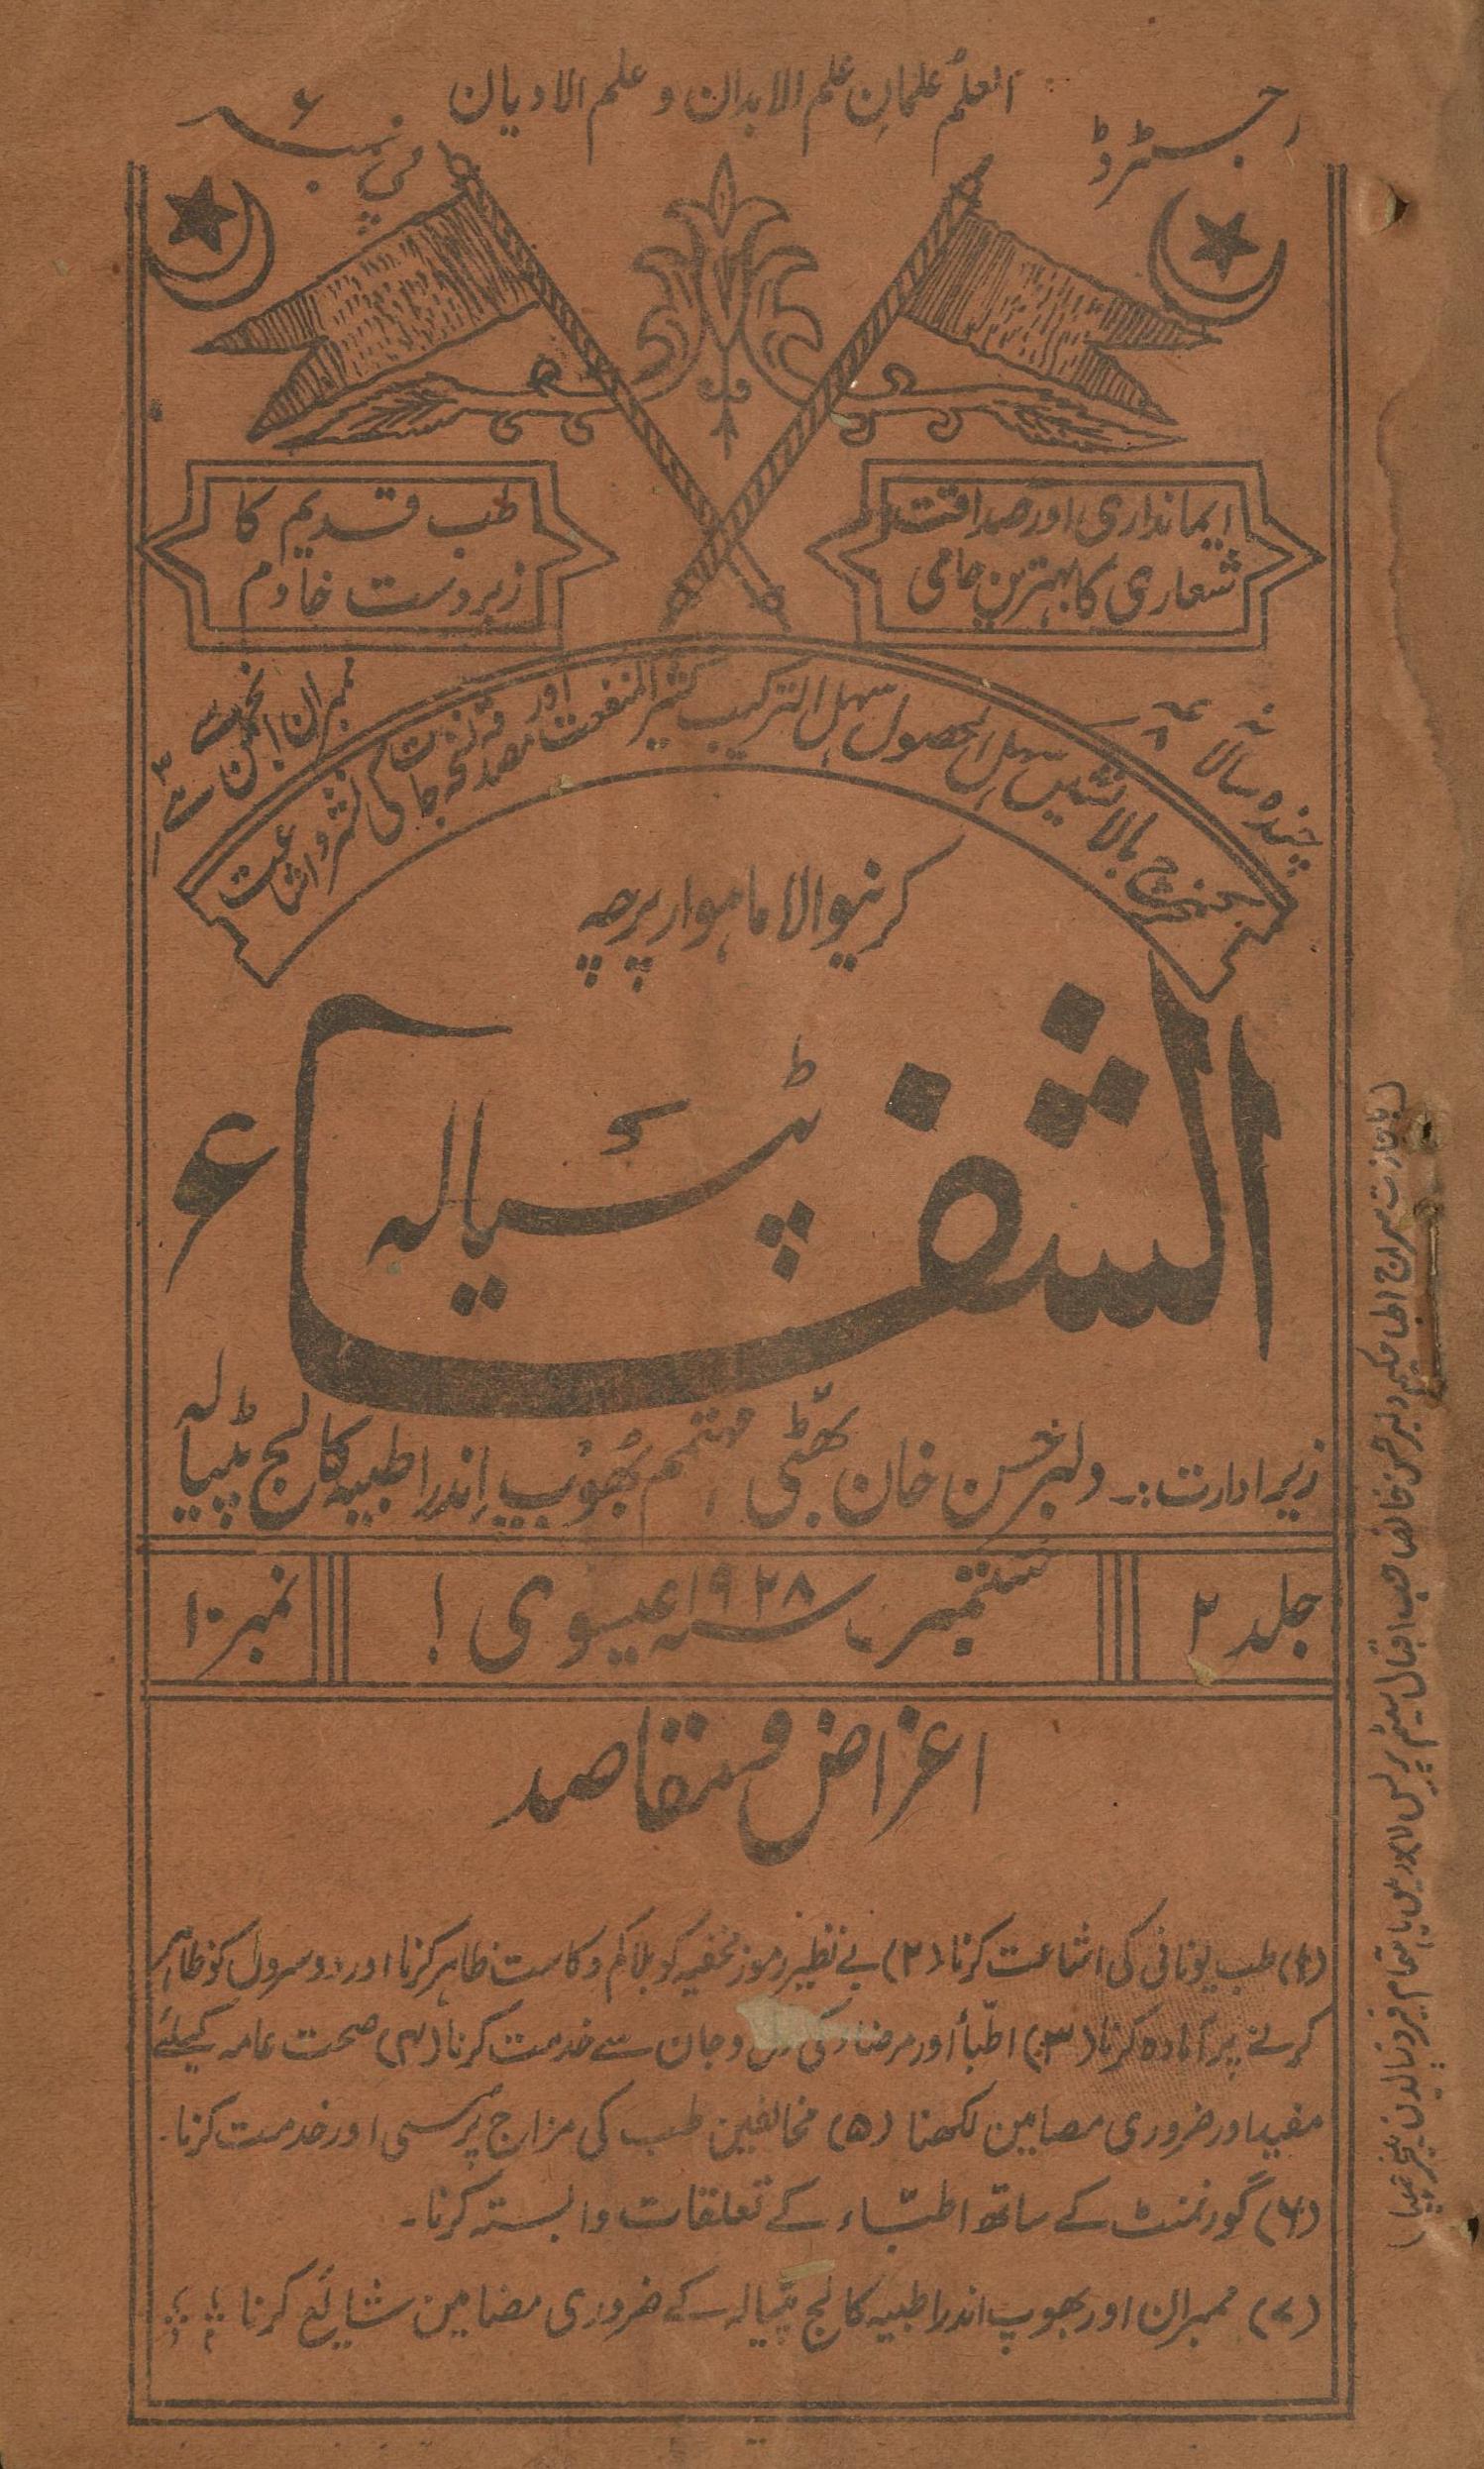 العلمُ علمانِ علم الابدان و علم الادیان
رجسٹرڈ
فی نمبر
ایمانداری اور صداقت
شعاری کا بہترین حامی
طب قدیم کا
زبردست خادم
چندہ سالانہ
ممبران انجمن سے
بالانشین سہل الحصول سہل الترکیب کثیر المنفعت اور مصدقہ نسخہ جات کی نشر و اشاعت
کرنیوالا ماہوار پرچہ
الشفاء
پٹیالہ
زیر ادارت:۔ دلبر حسن خان بھٹی مہتمم بھُوپ اِندرا طبیہ کالج پٹیالہ
جلد ۲
ستمبر ۱۹۲۸ء عیسوی !
نمبر ۱۰
اغراض و مقاصد
(۱) طب یونانی کی اشاعت کرنا (۲) بے نظیر رموز مخفیہ کو بلا کم و کاست ظاہر کرنا اور دوسروں کو ظاہر
کرنے پر آمادہ کرنا (۳) اطبّأ اور مرضاء کی دل و جان سے خدمت کرنا (۴) صحت عامہ کیلئے
مفید اور ضروری مضامین لکھنا (۵) مخالفین طب کی مزاج پُرسی اور خدمت کرنا۔
(۶) گورنمنٹ کے ساتھ اطبّاء کے تعلقات وابستہ کرنا۔
(۷) ممبران اور بھوپ اندرا طبیہ کالج پٹیالہ کے ضروری مضامین شائع کرنا
(باجازت سراج الاطبا حکیم دلبر حسن خانصاحب اقبال سٹیم پریس لاہور میں باہتمام فیروزالدین منیجر چھپا)